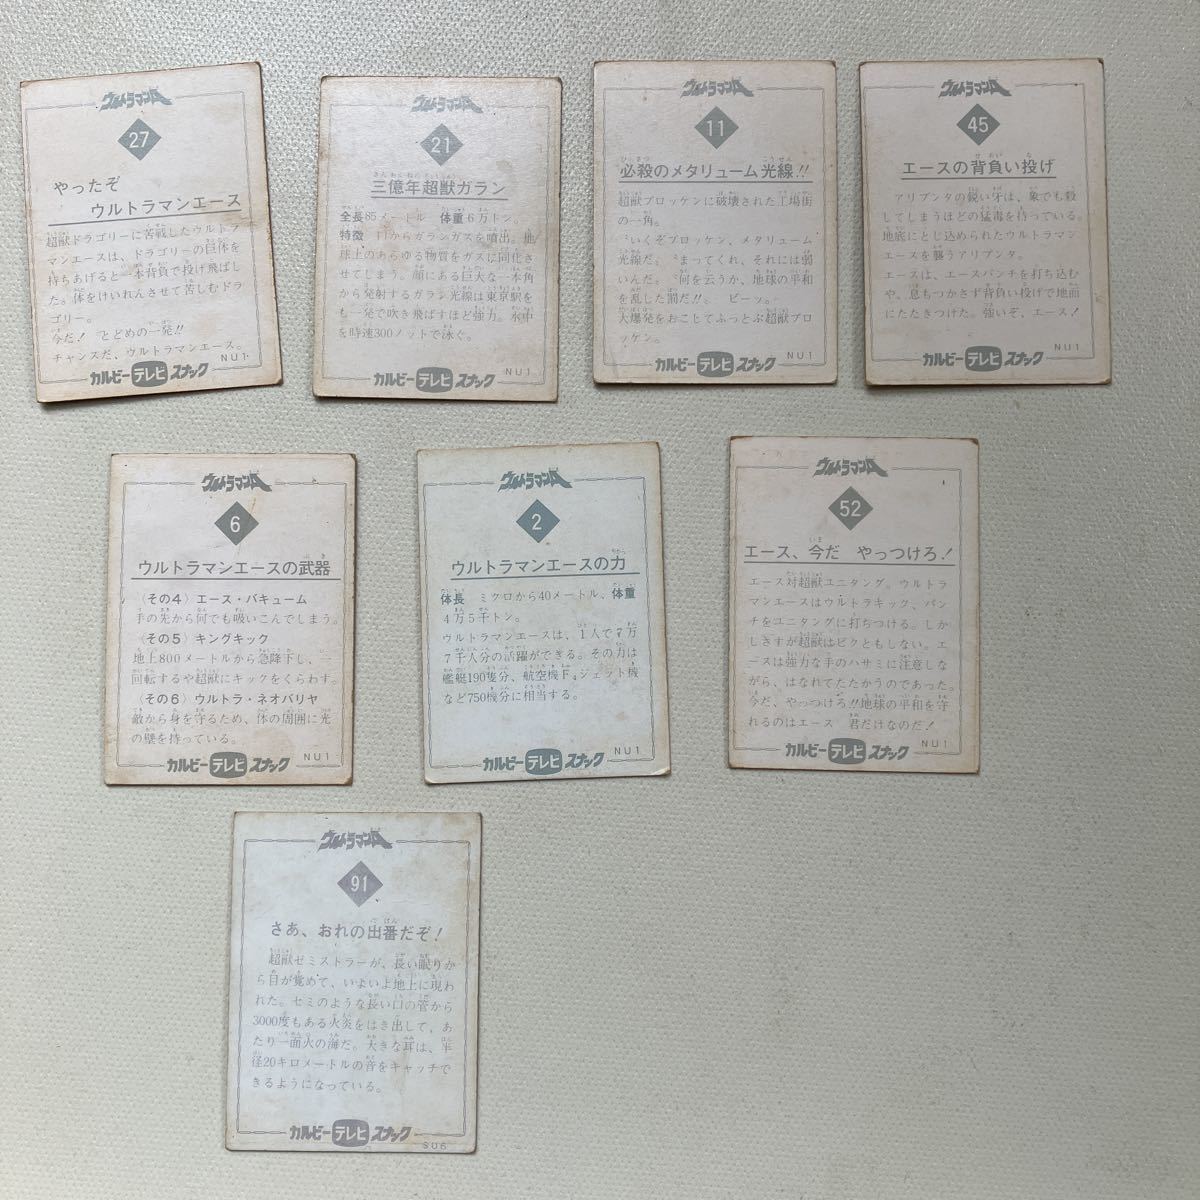 ウルトラマンA
27
やったぞ
ウルトラマンエース
超獣ドラゴリーに苦戦したウルトラ
マンエースは、ドラゴリーの巨体を
持ちあげると一本背負で投げ飛ばし
た。体をけいれんさせて苦しむドラ
ゴリー。
今だ! とどめの一発!!
チャンスだ、ウルトラマンエース。
NU1
カルビーテレビスナック
ウルトラマンA
21
三億年超獣ガラン
全長85メートル 体重6万トン。
特徴 口からガランガスを噴出。地
球上のあらゆる物質をガスに同化さ
せてしまう。顔にある巨大な一本角
から発射するガラン光線は東京駅を
も一発で吹き飛ばすほど強力。水中
を時速300ノットで泳ぐ。
カルビーテレビスナック
NU1
ウルトラマンA
11
必殺のメタリューム光線!!
超獣ブロッケンに破壊された工場街
の一角。
〝いくぞブロッケン、メタリューム
光線だ。〝まってくれ、それには弱
いんだ。〝何を云うか、地球の平和
を乱した罰だ!!。 ビーッ。
大爆発をおこしてふっとぶ超獣ブロ
ッケン。
NU1
カルビーテレビスナック
ウルトラマンA
45
エースの背負い投げ
アリブンタの鋭い牙は、象でも殺
してしまうほどの猛毒を持っている。
地底にとじ込められたウルトラマン
エースを襲うアリブンタ。
エースは、エースパンチを打ち込む
や、息もつかさず背負い投げで地面
にたたきつけた。強いぞ、エース!
NU1
カルビーテレビスナック
ウルトラマンA
6
ウルトラマンエースの武器
(その4) エース・バキューム
手の先から何でも吸いこんでしまう。
(その5) キングキック
地上800メートルから急降下し、一
回転するや超獣にキックをくらわす。
(その6) ウルトラ・ネオバリヤ
敵から身を守るため、体の周囲に光
の壁を持っている。
NU1
カルビーテレビスナック
ウルトラマンA
2
ウルトラマンエースの力
体長 ミクロから40メートル、体重
4万5千トン。
ウルトラマンエースは、1人で7万
7千人分の活躍ができる。その力は
艦艇190隻分、航空機F4ジェット機
など750機分に相当する。
NU1
カルビーテレビスナック
ウルトラマンA
52
エース、今だ やっつけろ!
エース対超獣ユニタング。ウルトラ
マンエースはウルトラキック、パン
チをユニタングに打ちつける。しか
しさすが超獣はビクともしない。エ
ースは強力な手のハサミに注意しな
がら、はなれてたたかうのであった。
今だ、やっつけろ!!地球の平和を守
れるのはエース 君だけなのだ!
NU1
カルビーテレビスナック
ウルトラマンA
91
さあ、おれの出番だぞ!
超獣ゼミストラーが、長い眠りか
ら目が覚めて、いよいよ地上に現わ
れた。セミのような長い口の管から
3000度もある火炎をはき出して、あ
たり一面火の海だ。大きな耳は、半
径20キロメートルの音をキャッチで
きるようになっている。
カルビーテレビスナック
SU6